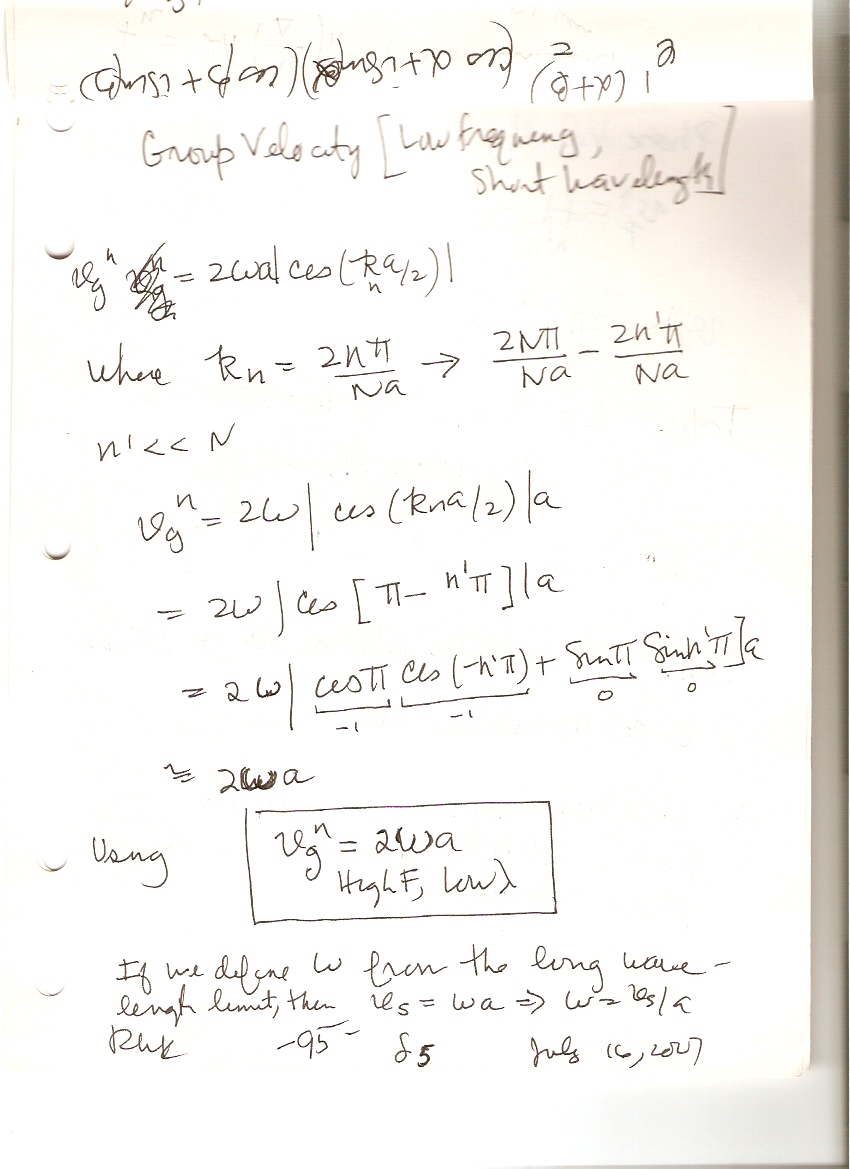 e^{i(α+β)} = (cos α + i sin α)(cos β + i sin β)
Group Velocity [Low frequency,
Short wavelength]
v_g^n = 2ωa|cos(k_n a/2)|
where k_n = 2nπ/Na → 2Nπ/Na - 2n'π/Na
n' << N
v_g^n = 2ω|cos(k_n a/2)|a
= 2ω|cos[π - n'π]|a
= 2ω|cosπ cos(-n'π) + sinπ sin n'π]a
-1 -1 0 0
≈ 2ωa
Using v_g^n = 2ωa
High F, low λ
If we define ω from the long wave-
length limit, then v_s = ωa ⇒ ω = v_s/a
-95- 85 July 16, 2007